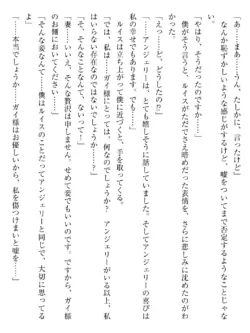 「あ……まあ……うん、たしかに、言ったけど」
なんか恥ずかしいような感じがするけど、嘘をついてまで否定するようなことじゃな
い。
「やはり、そうだったのですか……」
僕がそう言うと、ルイスはただでさえ暗めだった表情を、さらに悲しみに沈めたのがわ
かった。
「えっ……ど、どうしたの？」
「……アンジェリーが、とても嬉しそうに話していました。そしてアンジェリーの喜びは
私の幸せでもあります。でも……」
ルイスは立ち上がって僕に近づくと、手を取ってくる。
「では、私は……ガイ様にとっては、何なのでしょうか？　アンジェリーがいる以上、私
はいらない存在なのではないでしょうか……？」
「そ、そんなことなんて、ないって！」
「妻……いいえ、そんな贅沢は申しません。せめて妾でもいいのです。ですから、ガイ様
のお側においてください……」
「そんな妾なんて……僕はルイスのことだってアンジェリーと同じで、大切に思ってる
よ」
「……本当でしょうか……ガイ様はお優しいから、私を傷つけまいと嘘を……」